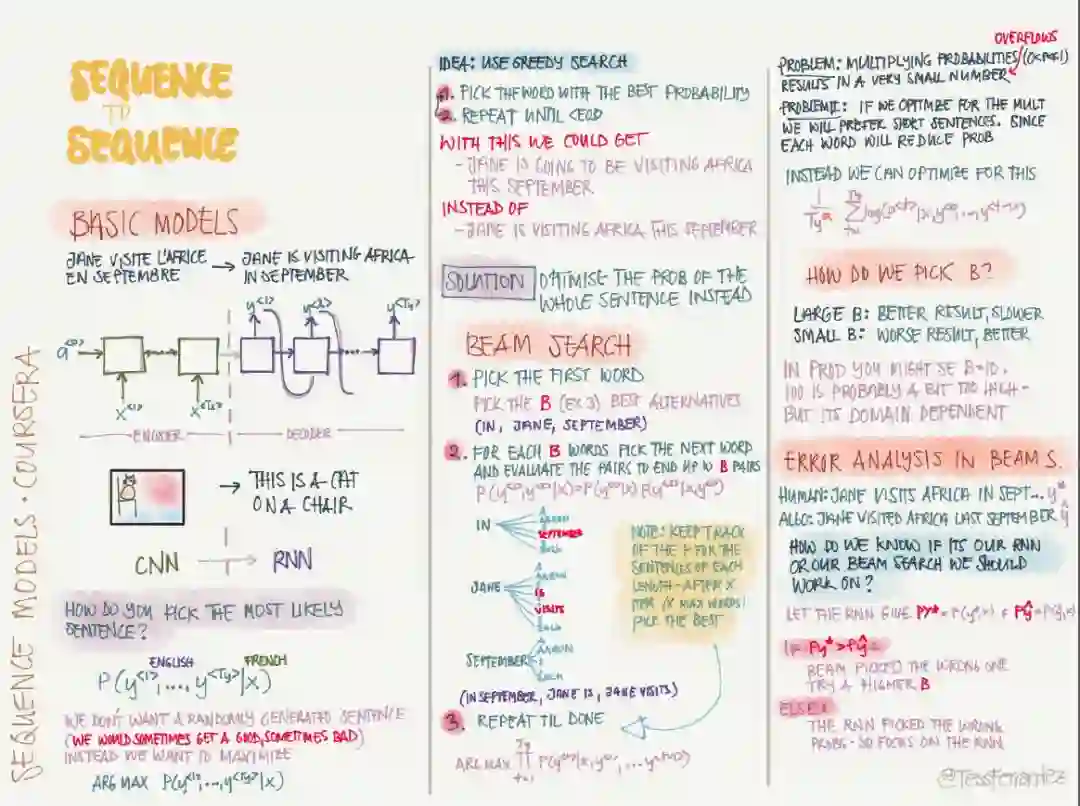 SEQUENCE
TO
SEQUENCE
BASIC MODELS
JANE VISITE L'AFRICE
EN SEPTEMBRE
→ JANE IS VISITING AFRICA
IN SEPTEMBER
a<0>
y<1> y<2> y<Ty>
x<1> x<Tx>
ENCODER DECODER
→ THIS IS A CAT
ON A CHAIR
CNN → RNN
HOW DO YOU PICK THE MOST LIKELY
SENTENCE?
ENGLISH FRENCH
P(y<1>,...,y<Ty>|x)
WE DON'T WANT A RANDOMLY GENERATED SENTENCE
(WE WOULD SOMETIMES GET A GOOD, SOMETIMES BAD)
INSTEAD WE WANT TO MAXIMIZE
ARG MAX P(y<1>,...,y<Ty>|x)
SEQUENCE MODELS · COURSERA
IDEA: USE GREEDY SEARCH
1. PICK THE WORD WITH THE BEST PROBABILITY
2. REPEAT UNTIL <EOD
WITH THIS WE COULD GET
- JANE IS GOING TO BE VISITING AFRICA
THIS SEPTEMBER
INSTEAD OF
- JANE IS VISITING AFRICA THIS SEPTEMBER
SOLUTION OPTIMISE THE PROB OF THE
WHOLE SENTENCE INSTEAD
BEAM SEARCH
1. PICK THE FIRST WORD
PICK THE B (EX 3) BEST ALTERNATIVES
(IN, JANE, SEPTEMBER)
2. FOR EACH B WORDS PICK THE NEXT WORD
AND EVALUATE THE PAIRS TO END UP W B PAIRS
P(y<1>,y<2>|x)=P(y<1>|x) P(y<2>|x,y<1>)
IN
A
AARON
SEPTEMBER
ZULU
JANE
A
AARON
IS
VISITS
ZULU
SEPTEMBER
A
AARON
ZULU
NOTE: KEEP TRACK
OF THE P FOR THE
SENTENCES OF EACH
LENGTH - AFTER X
ITER (X MAX WORDS)
PICK THE BEST
(IN SEPTEMBER, JANE IS, JANE VISITS)
3. REPEAT TIL DONE
ARG MAX
OVERFLOWS
PROBLEM: MULTIPLYING PROBABILITIES (0<P<1)
RESULTS IN A VERY SMALL NUMBER
PROBLEM II: IF WE OPTIMIZE FOR THE MULT
WE WILL PREFER SHORT SENTENCES. SINCE
EACH WORD WILL REDUCE PROB
INSTEAD WE CAN OPTIMIZE FOR THIS
HOW DO WE PICK B?
LARGE B: BETTER RESULT, SLOWER
SMALL B: WORSE RESULT, BETTER
IN PROD YOU MIGHT SE B=10.
100 IS PROBABLY A BIT TOO HIGH -
BUT ITS DOMAIN DEPENDENT
ERROR ANALYSIS IN BEAM S.
HUMAN: JANE VISITS AFRICA IN SEPT... y*
ALGO: JANE VISITED AFRICA LAST SEPTEMBER ŷ
HOW DO WE KNOW IF ITS OUR RNN
OR OUR BEAM SEARCH WE SHOULD
WORK ON?
LET THE RNN GIVE Py*=P(y*|x) & Pŷ=P(ŷ|x)
IF Py*>Pŷ=
BEAM PICKED THE WRONG ONE
TRY A HIGHER B
ELSE:
THE RNN PICKED THE WRONG
PROBS - SO FOCUS ON THE RNN
@TessFerrandez